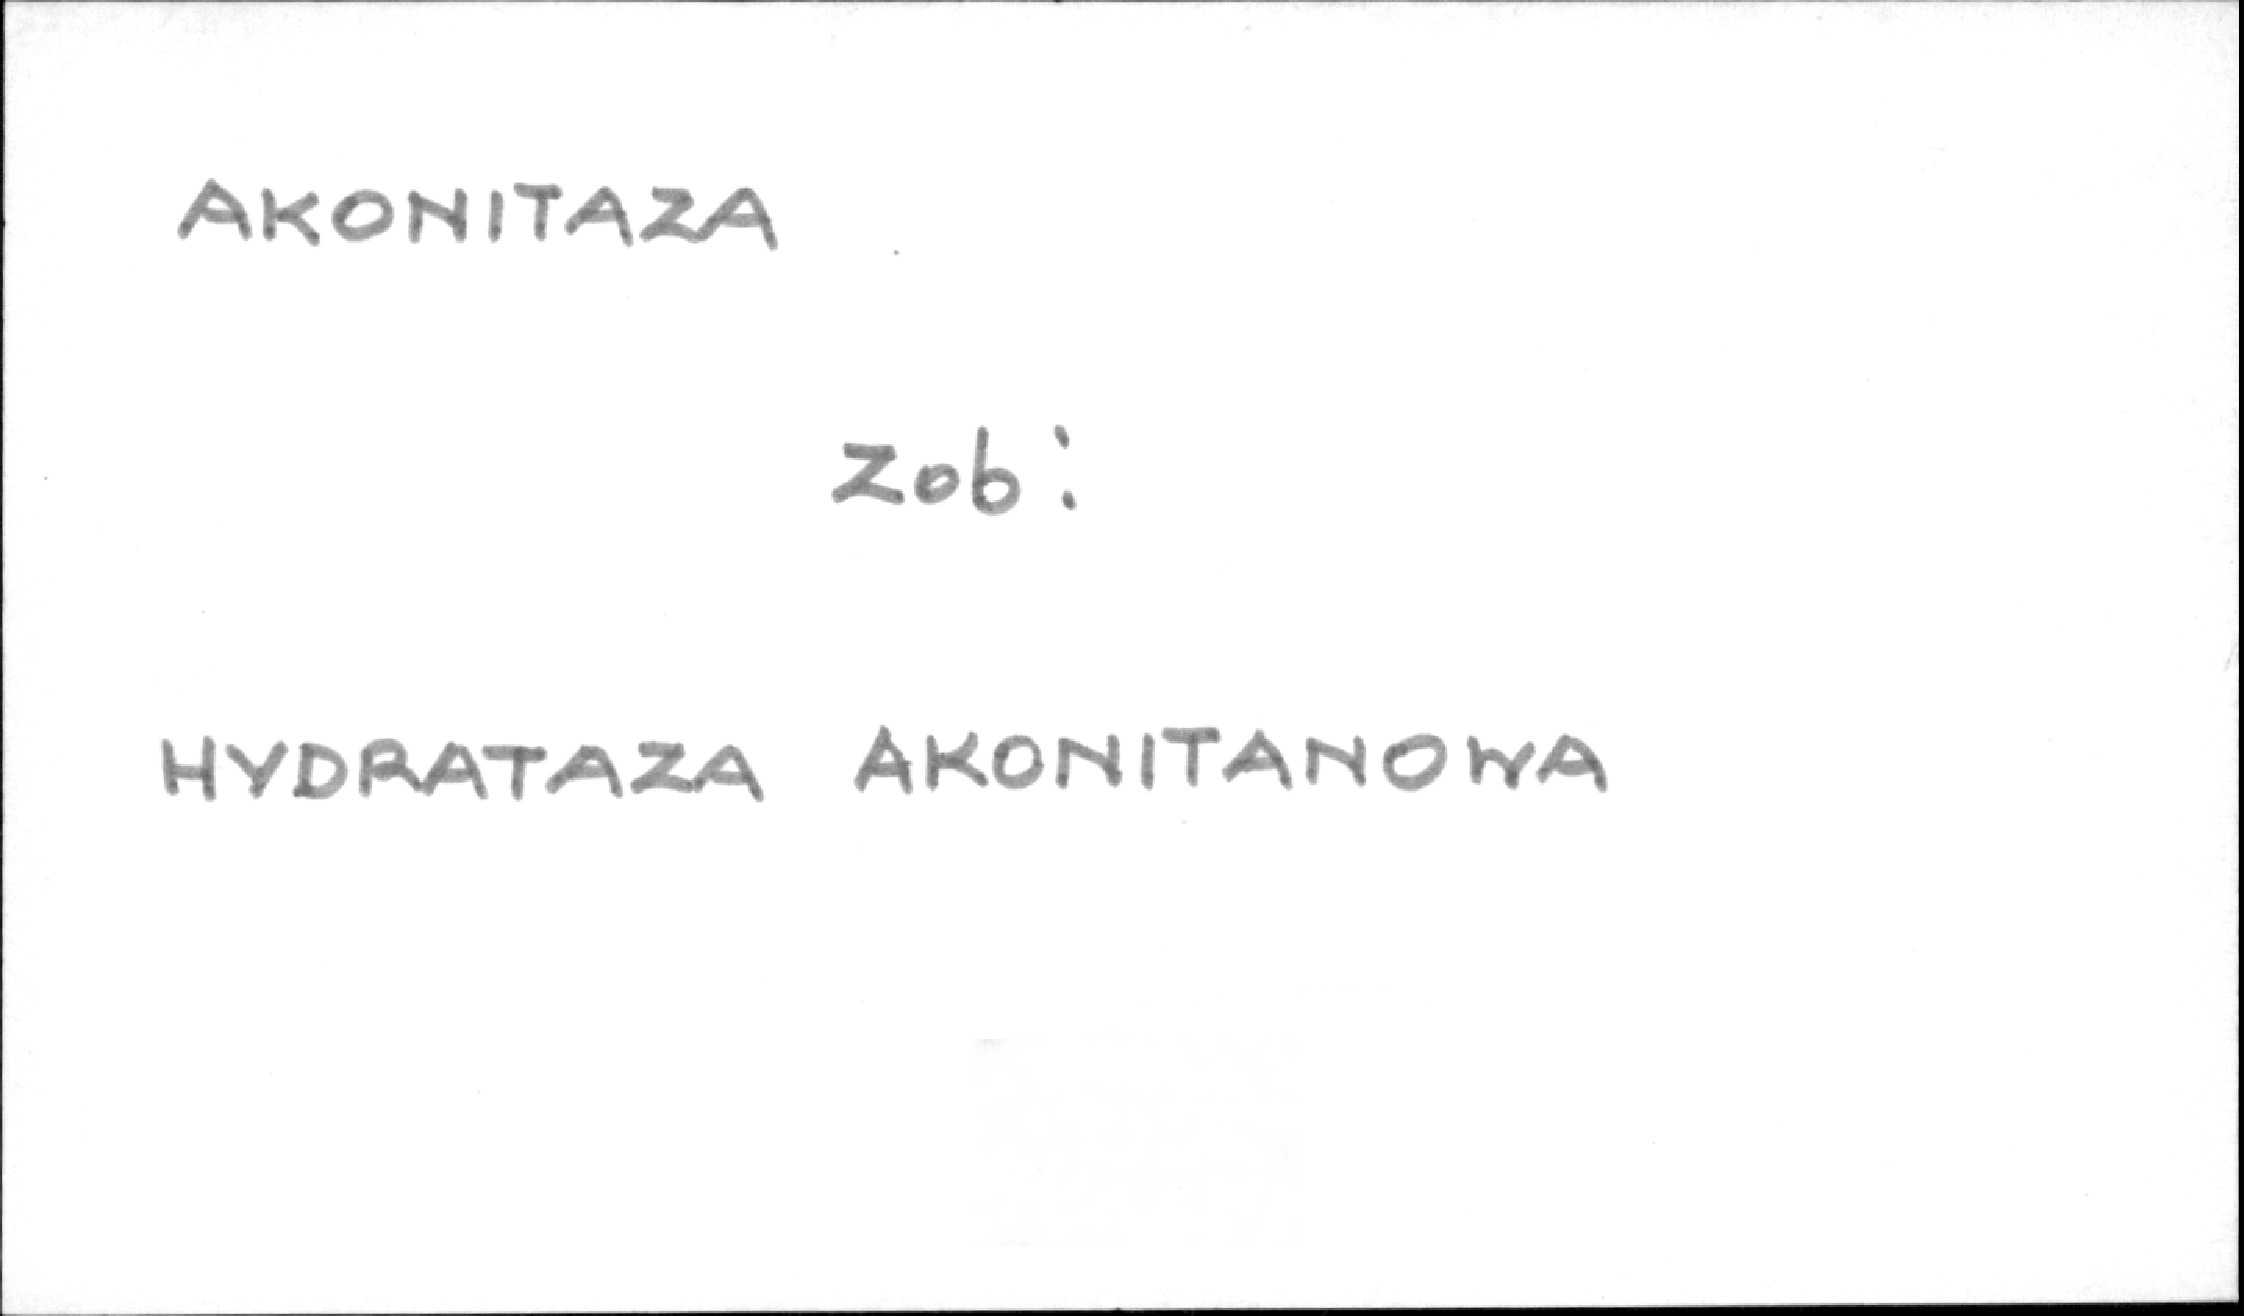 AKONITAZA
Zob:
HYDRATAZA AKONITANOWA